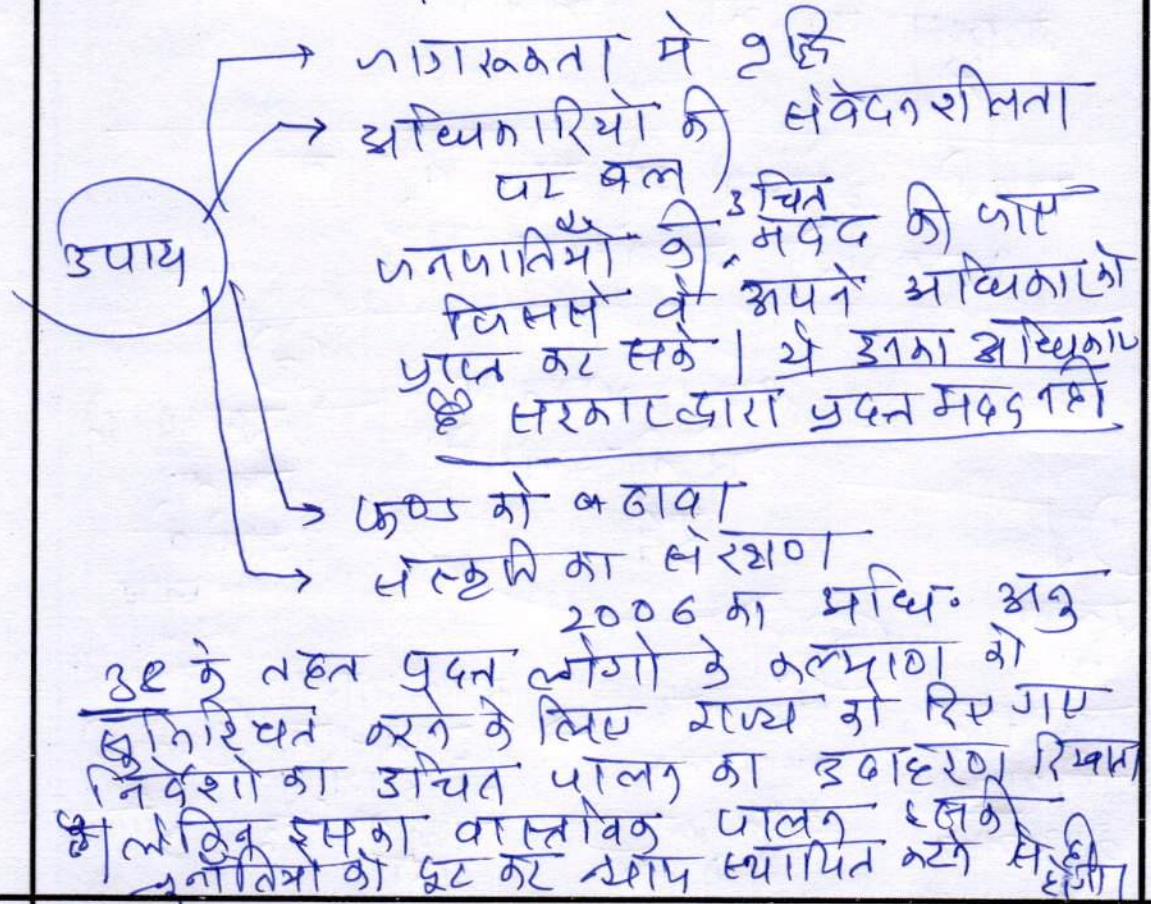 जागरूकता मे वृद्धि
अधिकारियो की संवेदनशीलता
पर बल
उपाय
जनजातियों की उचित मदद की जाए
जिससे वे अपने अधिकार को
प्राप्त कर सके। ये उनका अधिकार
है सरकार द्वारा प्रदत्त मदद नही
फण्ड को बढावा
संस्कृति का संरक्षण
2006 का अधि. अनु
38 के तहत प्रदत्त लोगो के कल्याण को
सुनिश्चित करने के लिए राज्य को दिए गए
निर्देशो का उचित पालन का उदाहरण दिखाता
है। लेकिन इसका वास्तविक पालन इसकी
चुनौतियो को दूट कर न्याय स्थापित करने से ही होगा।